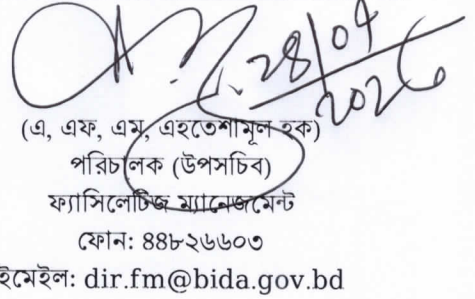 28/04
2026
(এ, এফ, এম, এহতেশামুল হক)
পরিচালক (উপসচিব)
ফ্যাসিলেটিজ ম্যানেজমেন্ট
ফোন: ৪৪৮২৬৬০৩
ইমেইল: dir.fm@bida.gov.bd